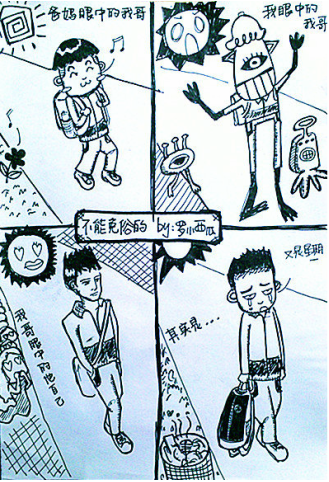 爸妈眼中的我哥
我眼中的
我哥
不能免俗的 by:罗小西瓜
我哥眼中的他自己
其实是...
又是星期一